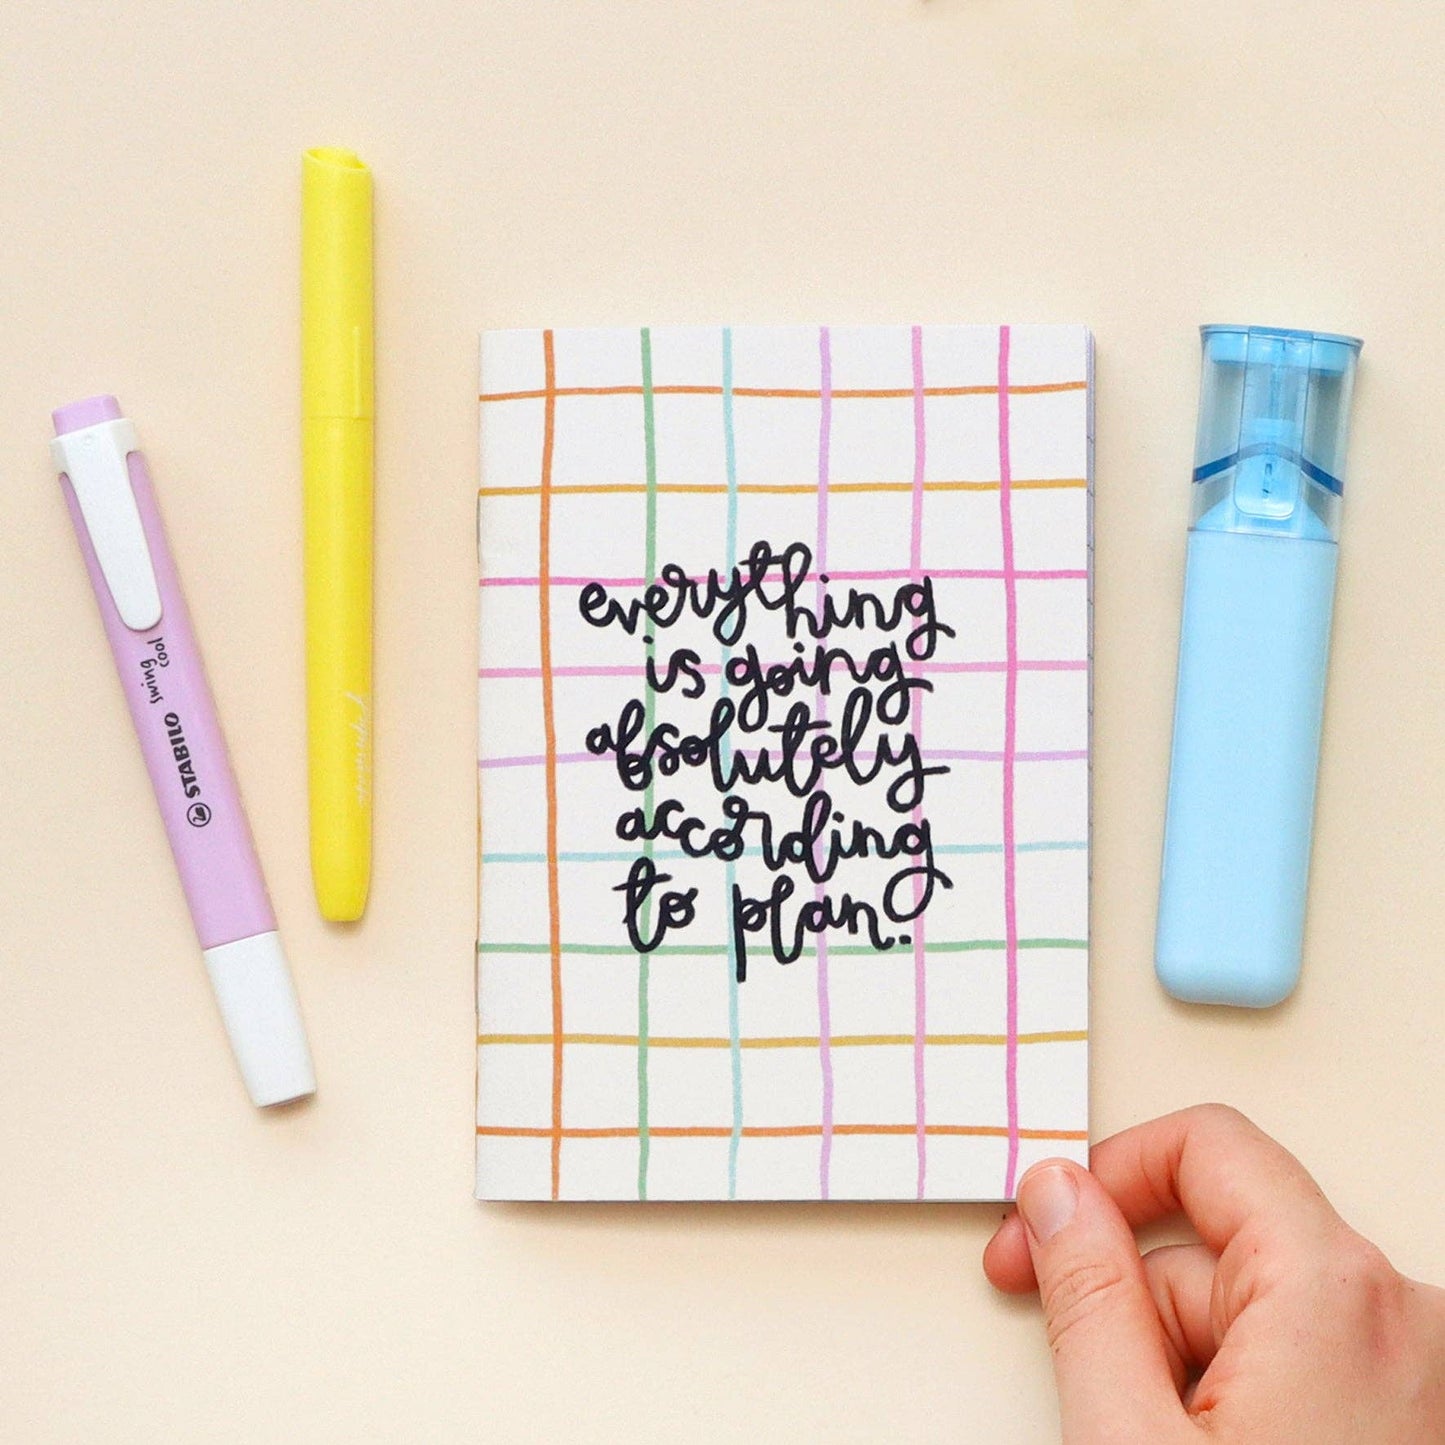 everything
is going
absolutely
according
to plan..
STABILO swing
cool